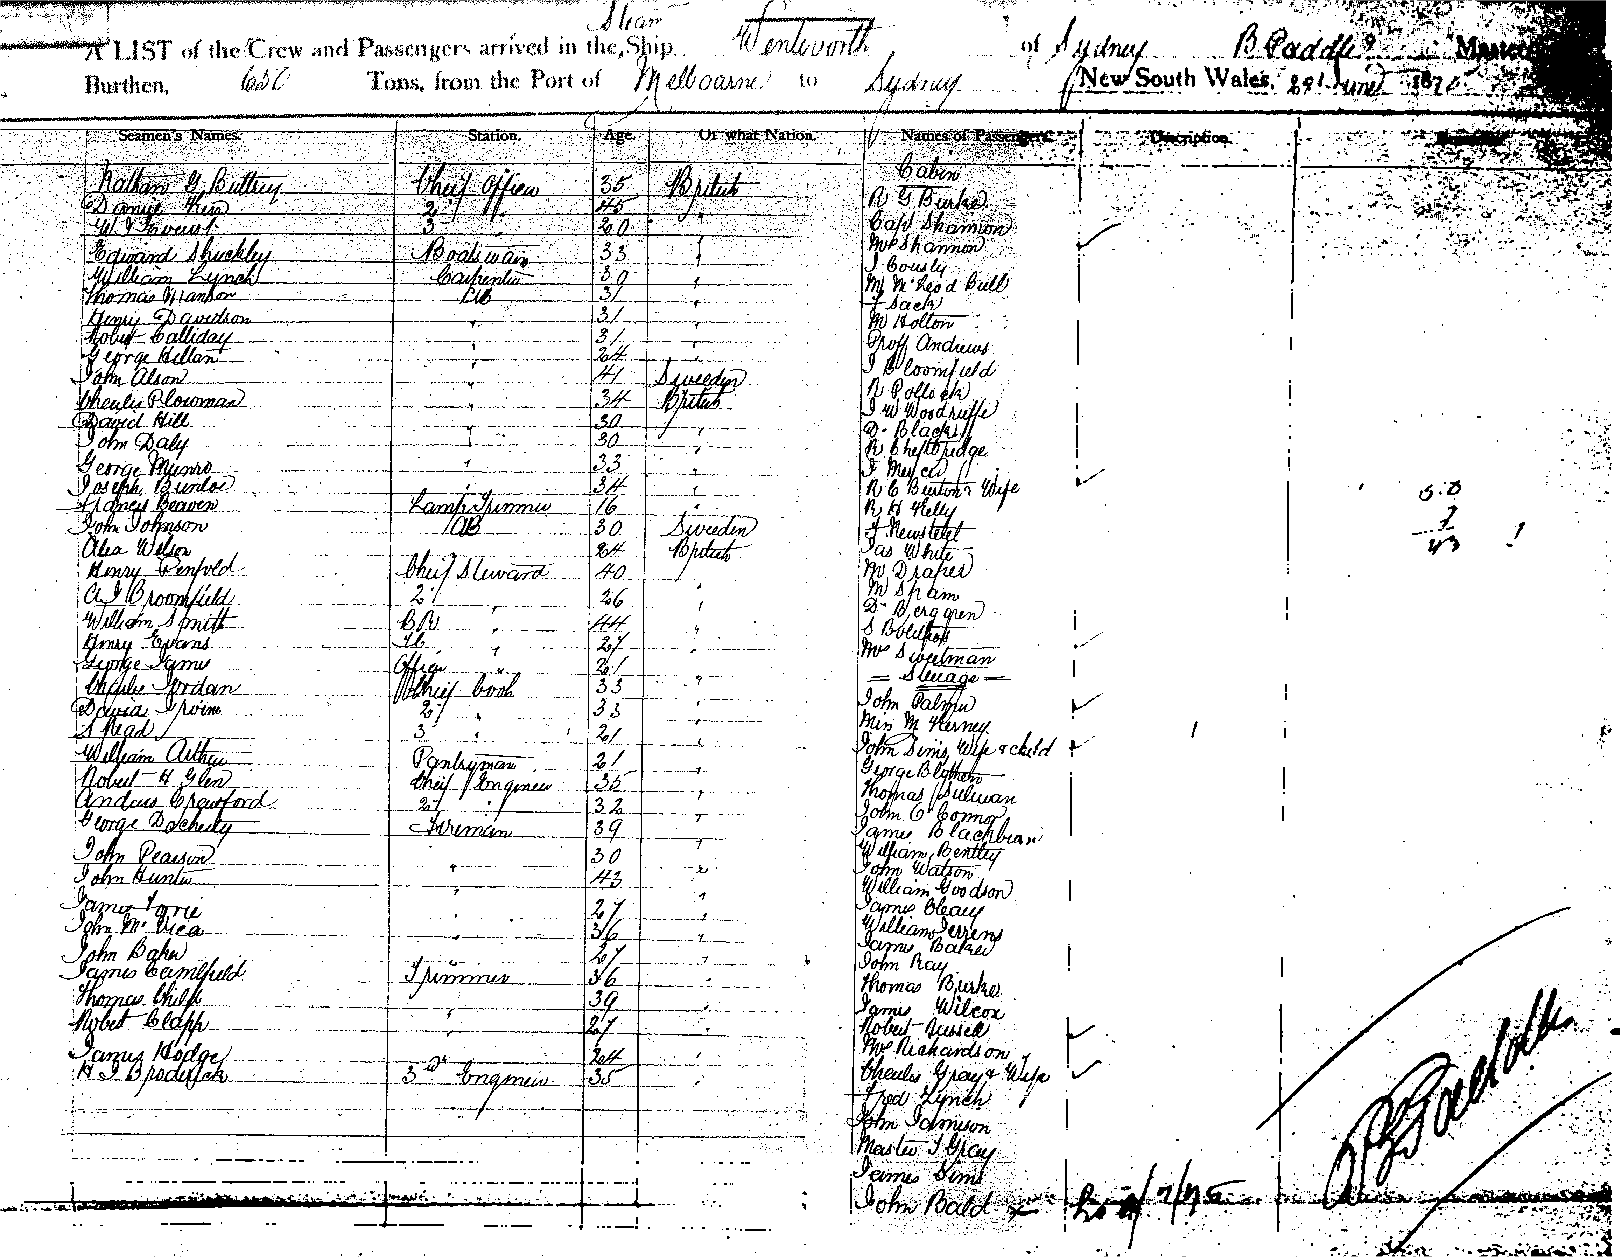 Steam
A LIST of the Crew and Passengers arrived in the Ship Wentworth of Sydney B Paddle Master
Burthen, 650 Tons, from the Port of Melbourne to Sydney New South Wales, June
Seamen's Names. Station. Age. Of what Nation. Names of Passengers. Description.
Nathan G Buttrey Cheif Officer 35 British Cabin
45 R G Burke
20 Capt Shannon
Edward Shuckley Boatswain 33 " Mrs Shannon
William Lynch Carpenter 39 "
Thomas Manson AB 31 " Mr McLeod Bull
Henry Davidson " 31 " Sack
Robert Calliday " 31 " M Holton
George Hillan " 24 " Proff Andrews
John Alson " 41 Sweeden J Bloomfield
Charles Plowman " 34 British R Pollock
David Hill " 30 " J W Woodriffe
John Daly " 30 " Dr Black
George Munro " 33 "
Joseph " 34 " R C Burton & Wife
Francis Beaven Lamp Trimmer 16 " R H Kelly
John Johnson AB 30 Sweeden
Alex Wilson " 24 British Jas White
Henry Penfold Cheif Steward 40 " M Draper
A J Broomfield 2 " 26 " M Spain
William Smith 44 " Dr Berggren
Henry Evans 27 " S
George James 21 Mrs Sweetman
Charles Jordan Cheif Cook 33 " — Steerage —
David Irvine 2 " 33 John Palmer
S Read 3 " 21 " Miss M Kerney
William Arthur Pantryman 21 " John Sims, Wife & child
Robert H Glen Cheif Engineer 35 " George
Andrew Crawford 2 " 32 " Thomas Sullivan
George Docherty Fireman 39 " John O Connor
James Blackburn
John Pearson " 30 " William Bentley
John Hunter " 43 " John Watson
William Goodson
James Torrie " 27 " James Cleary
John Mc Vica " 36 " William
James Baker
John Baker " 27 " John Ray
James Camlfield Trimmer 36 " Thomas Burke
Thomas Philp " 39 " James Wilcox
Robert Clapp " 27 " Robert Russell
James Hodge " 24 " Mrs Richardson
H J Broderick 3rd Engineer 35 " Charles Gray & Wife
Fred Lynch
John Jamison
Master J Gray
James Sims
John Bald x
50
7
43
B Paddle